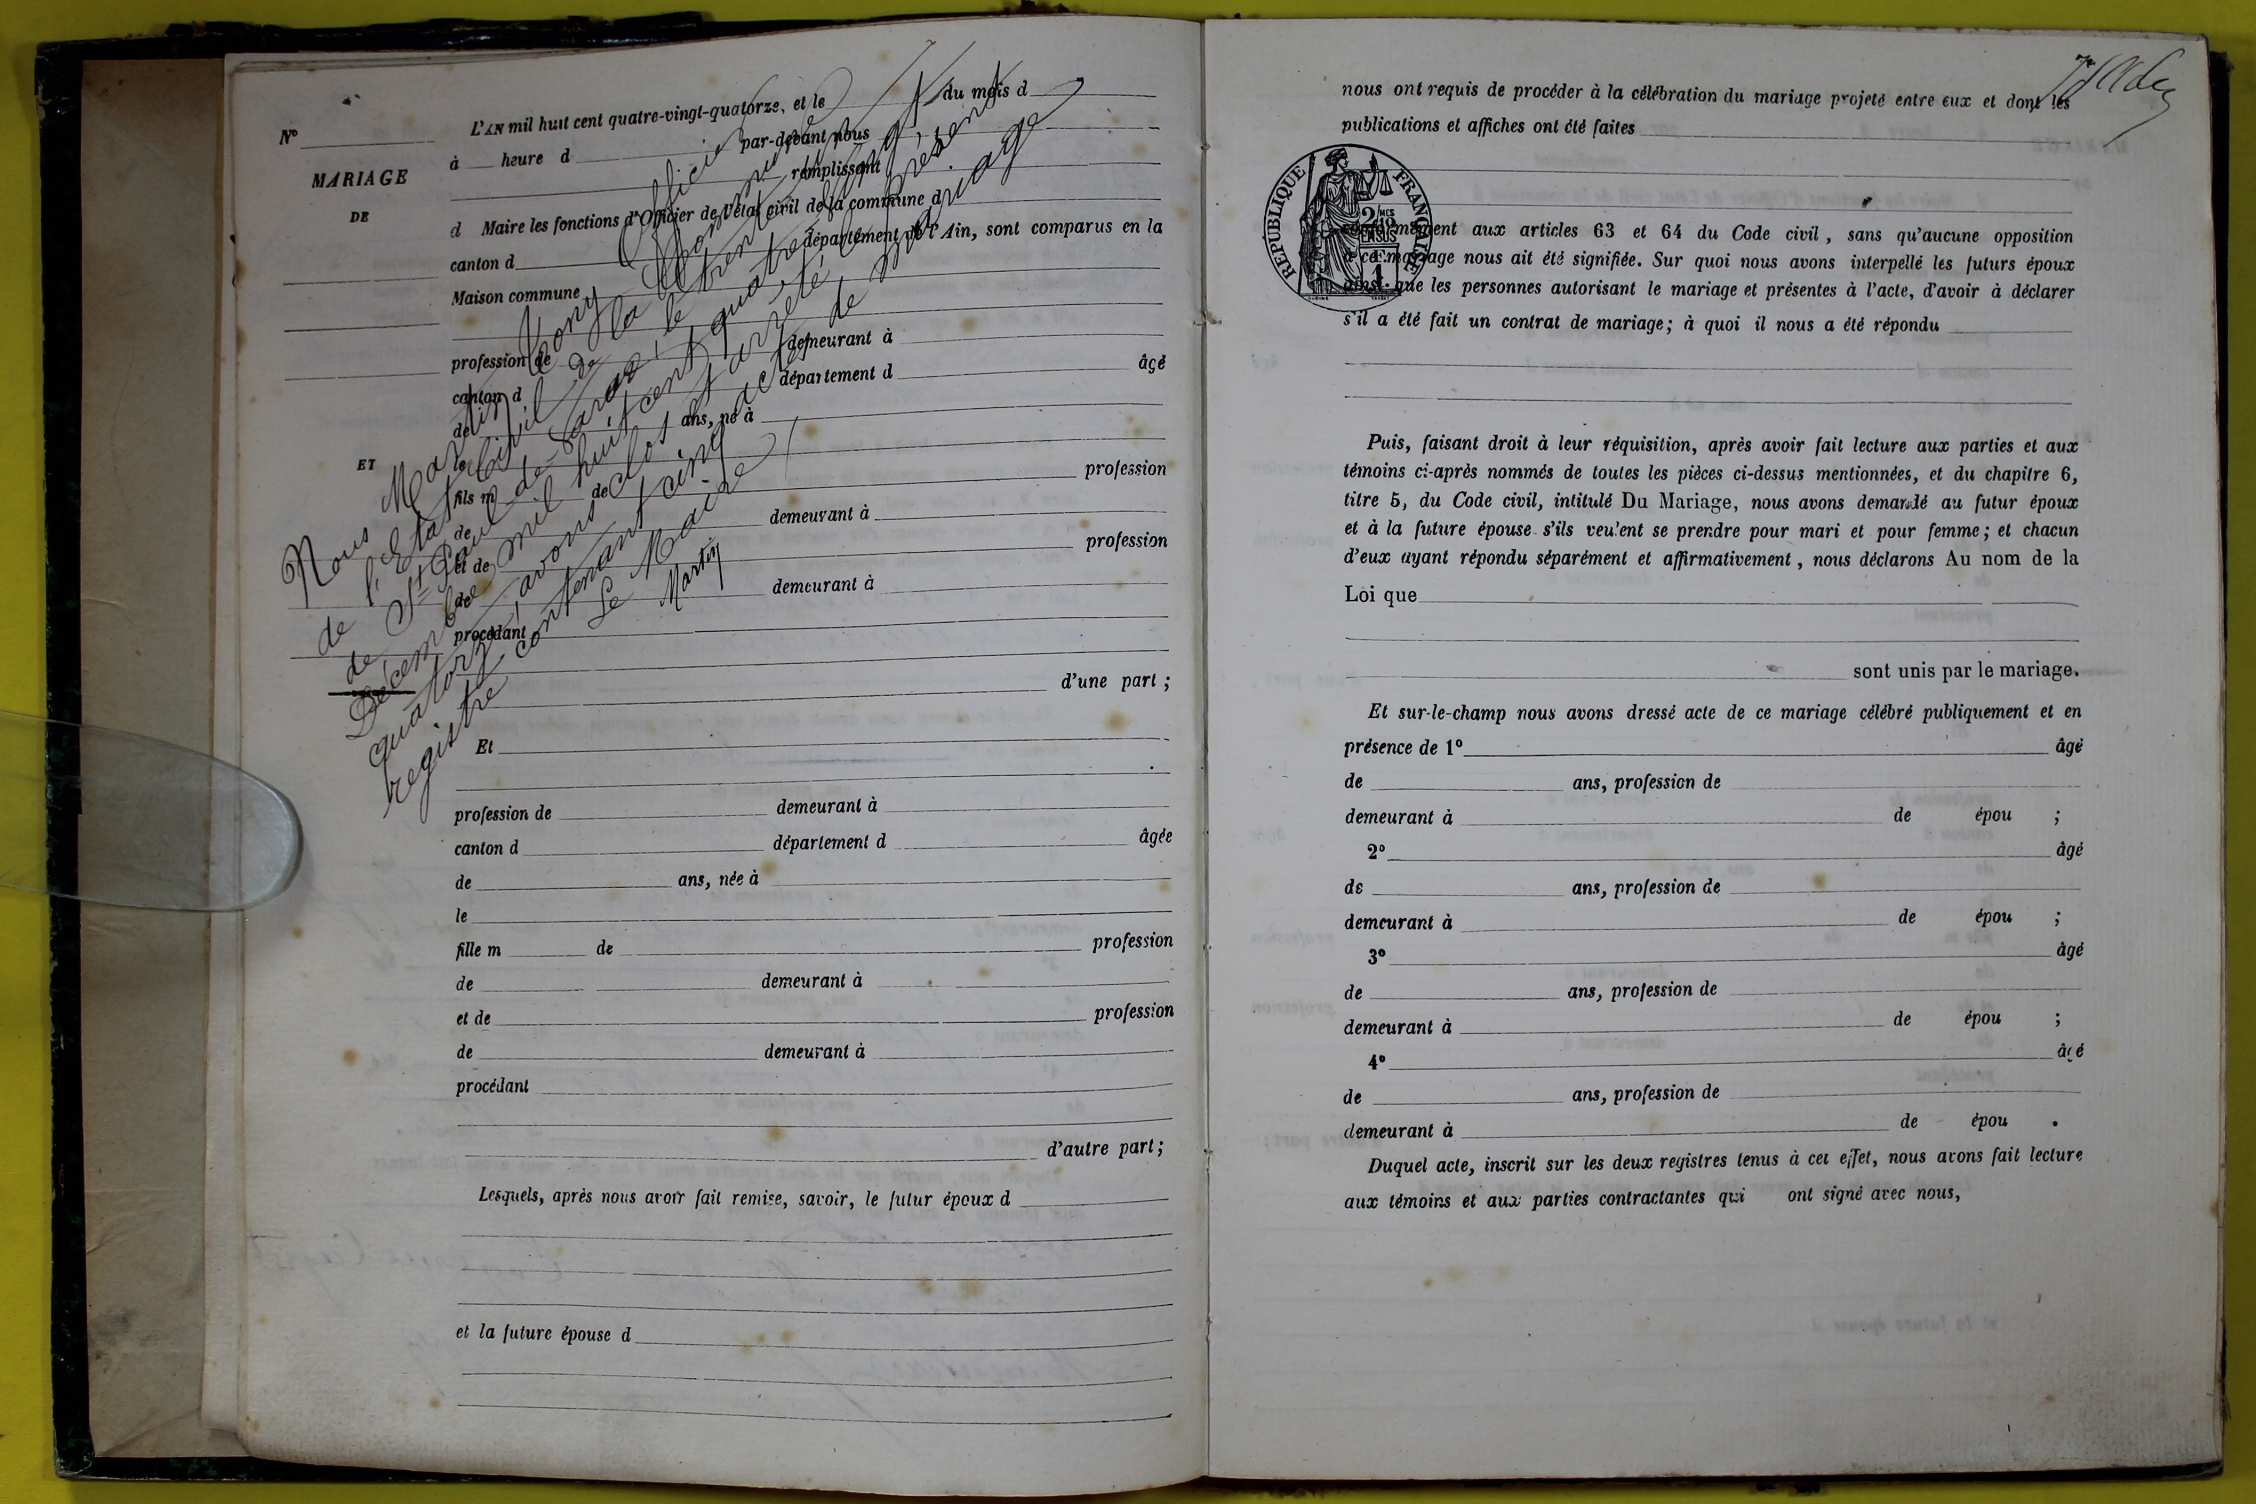 N°
MARIAGE
DE
ET
L'AN mil huit cent quatre-vingt-quatorze, et le du mois d
à heure d par-devant nous
remplissant
d Maire les fonctions d'Officier de l'état civil de la commune d
canton d département de l'Ain, sont comparus en la
Maison commune
profession de demeurant à
canton d département d âgé
de ans, né à
le
fils m de profession
de demeurant à
et de profession
de demeurant à
procédant
d'une part ;
Et
profession de demeurant à
canton d département d âgée
de ans, née à
le
fille m de profession
de demeurant à
et de profession
de demeurant à
procédant
d'autre part ;
Lesquels, après nous avoir fait remise, savoir, le futur époux d
et la future épouse d
Nous Martin Tony Officier
de l'Etat Civil de la Commune
de St Paul de Varax, le trente un
Décembre mil huit cent quatre vingt
quatorze, avons clos et arrêté le présent
registre contenant cinq actes de mariage
Le Maire
Martin
nous ont requis de procéder à la célébration du mariage projeté entre eux et dont les
publications et affiches ont été faites
RÉPUBLIQUE FRANÇAISE
2/10mes
EN SUS
1 F.
conformément aux articles 63 et 64 du Code civil, sans qu'aucune opposition
à ce mariage nous ait été signifiée. Sur quoi nous avons interpellé les futurs époux
ainsi que les personnes autorisant le mariage et présentes à l'acte, d'avoir à déclarer
s'il a été fait un contrat de mariage; à quoi il nous a été répondu
Puis, faisant droit à leur réquisition, après avoir fait lecture aux parties et aux
témoins ci-après nommés de toutes les pièces ci-dessus mentionnées, et du chapitre 6,
titre 5, du Code civil, intitulé Du Mariage, nous avons demandé au futur époux
et à la future épouse s'ils veulent se prendre pour mari et pour femme; et chacun
d'eux ayant répondu séparément et affirmativement, nous déclarons Au nom de la
Loi que
sont unis par le mariage.
Et sur-le-champ nous avons dressé acte de ce mariage célébré publiquement et en
présence de 1° âgé
de ans, profession de
demeurant à de épou ;
2° âgé
de ans, profession de
demeurant à de épou ;
3° âgé
de ans, profession de
demeurant à de épou ;
4° âgé
de ans, profession de
demeurant à de épou .
Duquel acte, inscrit sur les deux registres tenus à cet effet, nous avons fait lecture
aux témoins et aux parties contractantes qui ont signé avec nous,